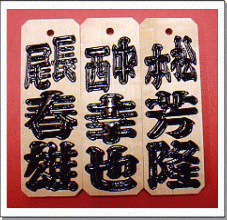 松本芳隆
中西幸也
長尾春雄